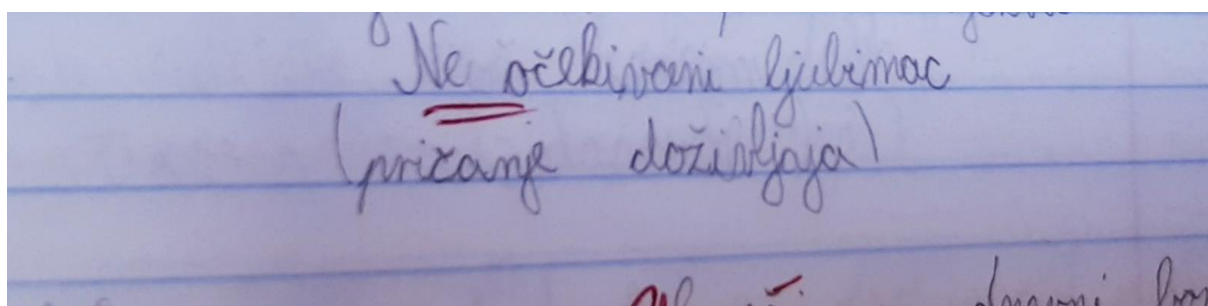 Ne očekivani ljubimac
(pričanje doživljaja)